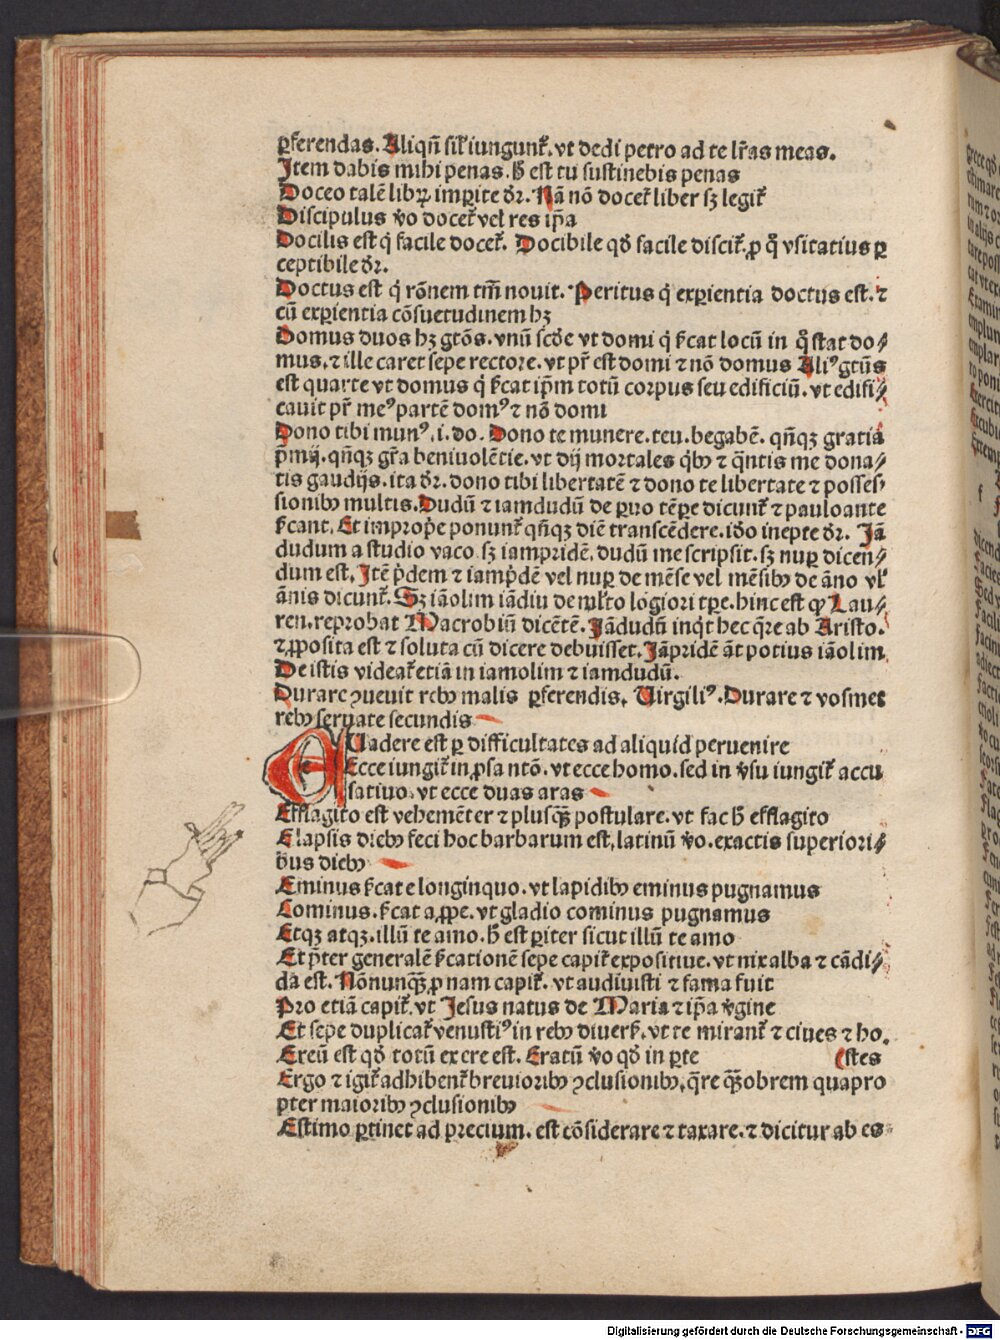 ꝑferendas. Aliqñ sil̕ iungunt̃. vt dedi petro ad te lr̃as meas.
Item dabis mihi penas. h̃ est tu sustinebis penas
Doceo talẽ libꝝ imꝑite dr̃. Nã nõ docet̃ liber sꝫ legit̃
Discipulus v̊o docet̃ vel res ip̃a
Docilis est q̇ facile docet̃. Docibile qđ facile discit̃, ꝓ q̊ vsitatius ꝑ
ceptibile dr̃.
Doctus est q̇ rõnem tm̃ nouit. Peritus q̇ exꝑientia doctus est. ⁊
cũ exꝑientia cõsuetudinem hꝫ
Domus duos hꝫ gtõs. vnũ scđe vt domi q̇ s̃cat locũ in q̊ stat do⸗
mus. ⁊ ille caret sepe rectore. vt pr̃ est domi ⁊ nõ domus Aliꝰ gtũs
est quarte vt domus q̇ s̃cat ip̃m totũ corpus seu edificiũ. vt edifi⸗
cauit pr̃ meꝰ partẽ domꝰ ⁊ nõ domi
Dono tibi munꝰ .i. do. Dono te munere. teu. begabẽ. qñqꝫ gratia
p̃mij. qñqꝫ gr̃a beniuolẽtie. vt dij mortales q̇bꝰ ⁊ q̃ntis me dona⸗
tis gaudijs. ita dr̃. dono tibi libertatẽ ⁊ dono te libertate ⁊ posses⸗
sionibꝰ multis. Dudũ ⁊ iamdudũ de ꝑuo tẽꝑe dicunt̃ ⁊ pauloante
s̃cant. Et improp̃e ponunt̃ qñqꝫ diẽ transcẽdere. iđo inepte dr̃. Jã
dudum a studio vaco sꝫ iampridẽ. dudũ me scripsit. sꝫ nuꝑ dicen⸗
dum est. Itẽ p̊dem ⁊ iamp̊dẽ vel nuꝑ de mẽse vel mẽsibꝰ de ãno vl̕
ãnis dicunt̃. Sꝫ iãolim iãdiu de ml̕to lõgiori tꝑe. hinc est ꝙ Lau⸗
ren. reprobat Macrobiũ dicẽtẽ. Jãdudũ inq̇t hec q̃re ab Aristo.
⁊ ꝓposita est ⁊ soluta cũ dicere debuisset. Jãpridẽ ãt potius iãolim
De istis videat̃ etiã in iamolim ⁊ iamdudũ.
Durare ꝯueuit rebꝰ malis ꝑferendis. Virgiliꝰ. Durare ⁊ vosmet
rebꝰ seruate secundis
EUadere est ꝑ difficultates ad aliquid peruenire
Ecce iungit̃ in ꝓsa ntõ. vt ecce homo. sed in v̊su iungit̃ accu
satiuo. vt ecce duas aras
Efflagito est vehemẽter ⁊ plusꝗ̃ postulare. vt fac h̃ efflagito
Elapsis diebꝰ feci hoc barbarum est, latinũ v̊o. exactis superiori⸗
bus diebꝰ
Eminus s̃cat e longinquo. vt lapidibꝰ eminus pugnamus
Cominus. s̃cat a ꝓpe. vt gladio cominus pugnamus
Etqꝫ atqꝫ. illũ te amo. h̃ est ꝑiter sicut illũ te amo
Et p̃ter generalẽ s̃cationẽ sepe capit̃ expositiue. vt nix alba ⁊ cãdi⸗
da est. Nõnunꝗ̃ ꝓ nam capit̃. vt audiuisti ⁊ fama fuit
Pro etiã capit̃. vt Jesus natus de Maria ⁊ ip̃a v̊gine
Et sepe duplicat̃ venustiꝰ in rebꝰ diuers̃. vt te mirant̃ ⁊ ciues ⁊ ho.
Ereũ est qđ totũ ex ere est. Eratũ v̊o qđ in ꝑte (stes
Ergo ⁊ igit̃ adhibent̃ breuioribꝰ ꝯclusionibꝰ, q̃re ꝗ̃obrem quapro
pter maioribꝰ ꝯclusionibꝰ
Estimo ꝑtinet ad precium. est cõsiderare ⁊ taxare. ⁊ dicitur ab es⸗
Digitalisierung gefördert durch die Deutsche Forschungsgemeinschaft - DFG